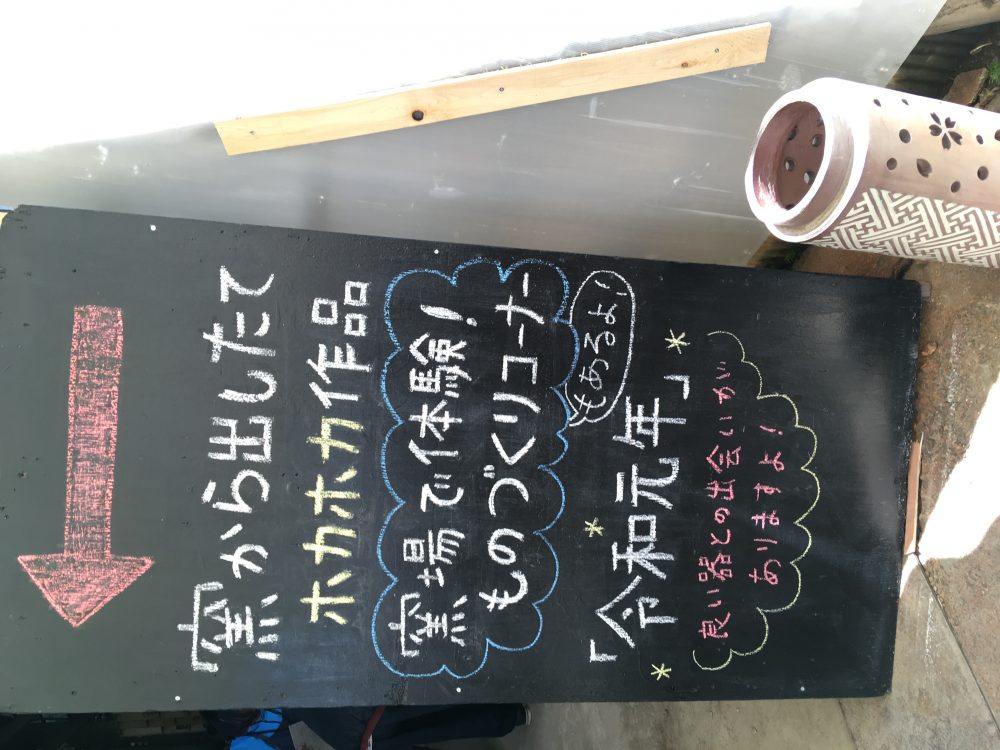 窯から出したて
ホカホカ作品
窯場で体験!
ものづくりコーナー
もあるよ!
「令和元年」
良い器との出会いが
ありますよ!